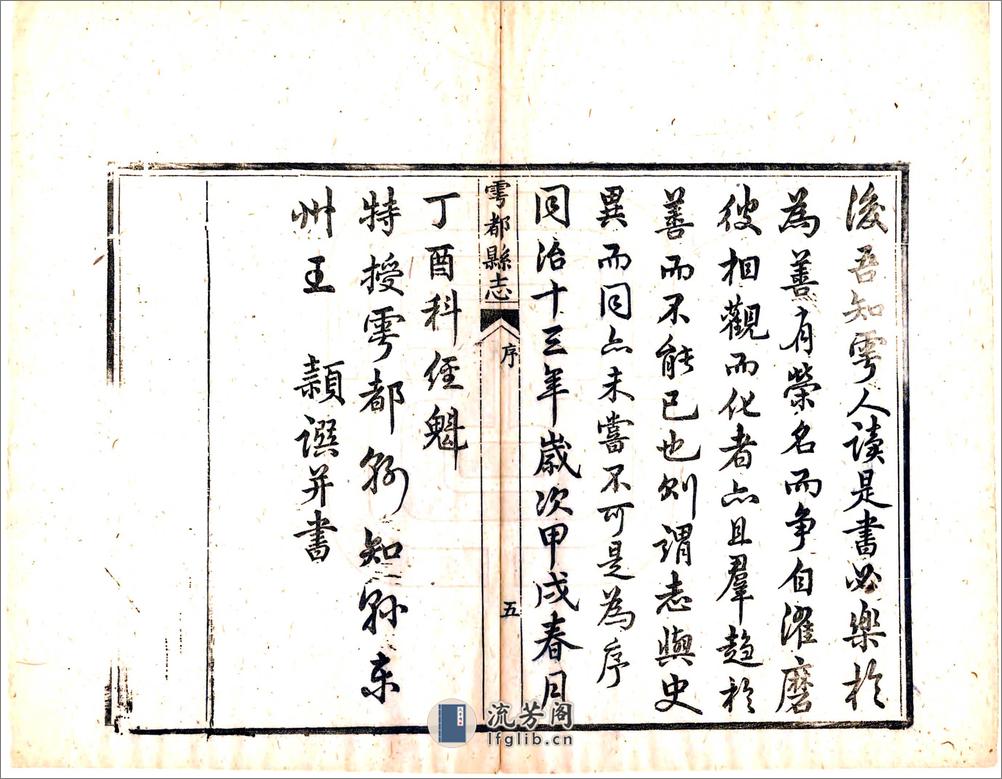 後吾知雩人讀是書必樂於
為善有榮名而争自濯磨
彼相觀而化者亦且羣趨於
善而不能已也則謂志與史
異而同亦未嘗不可是為序
同治十三年歲次甲戌春月
雩都縣志
序
五
丁酉科經魁
特授雩都縣知縣東
州王 穎譔并書
流芳阁
lfglib.cn